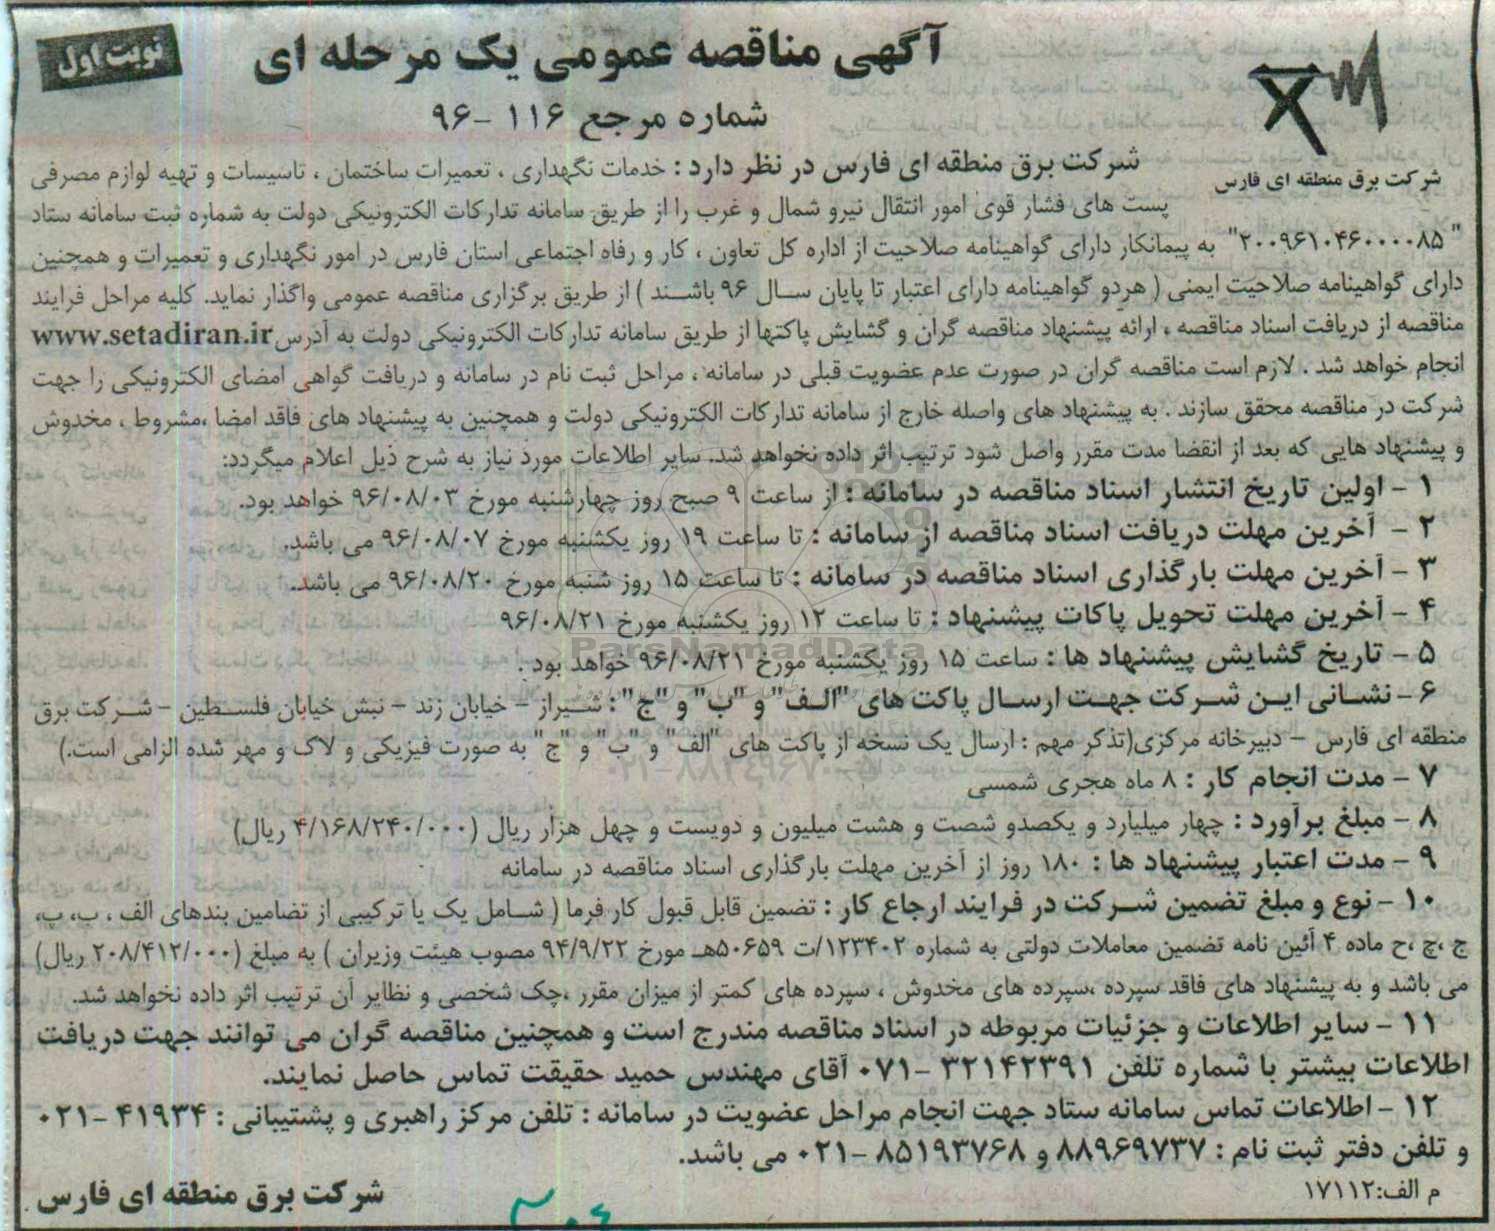 نوبت اول
آگهی مناقصه عمومی یک مرحله ای
شماره مرجع ۱۱۶ -۹۶
شرکت برق منطقه ای فارس
شرکت برق منطقه ای فارس در نظر دارد : خدمات نگهداری ، تعمیرات ساختمان ، تاسیسات و تهیه لوازم مصرفی
پست های فشار قوی امور انتقال نیرو شمال و غرب را از طریق سامانه تدارکات الکترونیکی دولت به شماره ثبت سامانه ستاد
"۲۰۰۹۶۱۰۴۶۰۰۰۰۸۵" به پیمانکار دارای گواهینامه صلاحیت از اداره کل تعاون ، کار و رفاه اجتماعی استان فارس در امور نگهداری و تعمیرات و همچنین
دارای گواهینامه صلاحیت ایمنی ( هردو گواهینامه دارای اعتبار تا پایان سال ۹۶ باشند ) از طریق برگزاری مناقصه عمومی واگذار نماید. کلیه مراحل فرایند
مناقصه از دریافت اسناد مناقصه ، ارائه پیشنهاد مناقصه گران و گشایش پاکتها از طریق سامانه تدارکات الکترونیکی دولت به آدرس www.setadiran.ir
انجام خواهد شد . لازم است مناقصه گران در صورت عدم عضویت قبلی در سامانه ، مراحل ثبت نام در سامانه و دریافت گواهی امضای الکترونیکی را جهت
شرکت در مناقصه محقق سازند . به پیشنهاد های واصله خارج از سامانه تدارکات الکترونیکی دولت و همچنین به پیشنهاد های فاقد امضا ،مشروط ، مخدوش
و پیشنهاد هایی که بعد از انقضا مدت مقرر واصل شود ترتیب اثر داده نخواهد شد. سایر اطلاعات مورد نیاز به شرح ذیل اعلام میگردد:
۱ - اولین تاریخ انتشار اسناد مناقصه در سامانه : از ساعت ۹ صبح روز چهارشنبه مورخ ۹۶/۰۸/۰۳ خواهد بود.
۲ - آخرین مهلت دریافت اسناد مناقصه از سامانه : تا ساعت ۱۹ روز یکشنبه مورخ ۹۶/۰۸/۰۷ می باشد.
۳ - آخرین مهلت بارگذاری اسناد مناقصه در سامانه : تا ساعت ۱۵ روز شنبه مورخ ۹۶/۰۸/۲۰ می باشد.
۴ - آخرین مهلت تحویل پاکات پیشنهاد : تا ساعت ۱۲ روز یکشنبه مورخ ۹۶/۰۸/۲۱
ParsNamadData
۵ - تاریخ گشایش پیشنهاد ها : ساعت ۱۵ روز یکشنبه مورخ ۹۶/۰۸/۲۱ خواهد بود .
۶ - نشانی این شرکت جهت ارسال پاکت های "الف" و "ب" و "ج" : شیراز – خیابان زند – نبش خیابان فلسطین – شرکت برق
منطقه ای فارس – دبیرخانه مرکزی(تذکر مهم : ارسال یک نسخه از پاکت های "الف" و "ب" و "ج" به صورت فیزیکی و لاک و مهر شده الزامی است.)
۷ - مدت انجام کار : ۸ ماه هجری شمسی
۸ - مبلغ برآورد : چهار میلیارد و یکصدو شصت و هشت میلیون و دویست و چهل هزار ریال (۴/۱۶۸/۲۴۰/۰۰۰ ریال)
۹ - مدت اعتبار پیشنهاد ها : ۱۸۰ روز از آخرین مهلت بارگذاری اسناد مناقصه در سامانه
۱۰ - نوع و مبلغ تضمین شرکت در فرایند ارجاع کار : تضمین قابل قبول کار فرما ( شامل یک یا ترکیبی از تضامین بندهای الف ، ب، پ،
ج ،چ ،ح ماده ۴ آئین نامه تضمین معاملات دولتی به شماره ۱۲۳۴۰۲/ت ۵۰۶۵۹هـ مورخ ۹۴/۹/۲۲ مصوب هیئت وزیران ) به مبلغ (۲۰۸/۴۱۲/۰۰۰ ریال)
می باشد و به پیشنهاد های فاقد سپرده ،سپرده های مخدوش ، سپرده های کمتر از میزان مقرر ،چک شخصی و نظایر آن ترتیب اثر داده نخواهد شد.
۱۱ - سایر اطلاعات و جزئیات مربوطه در اسناد مناقصه مندرج است و همچنین مناقصه گران می توانند جهت دریافت
اطلاعات بیشتر با شماره تلفن ۳۲۱۴۲۳۹۱ -۰۷۱ آقای مهندس حمید حقیقت تماس حاصل نمایند.
۱۲ - اطلاعات تماس سامانه ستاد جهت انجام مراحل عضویت در سامانه : تلفن مرکز راهبری و پشتیبانی : ۴۱۹۳۴ -۰۲۱
و تلفن دفتر ثبت نام : ۸۸۹۶۹۷۳۷ و ۸۵۱۹۳۷۶۸ -۰۲۱ می باشد.
م الف:۱۷۱۱۲
شرکت برق منطقه ای فارس